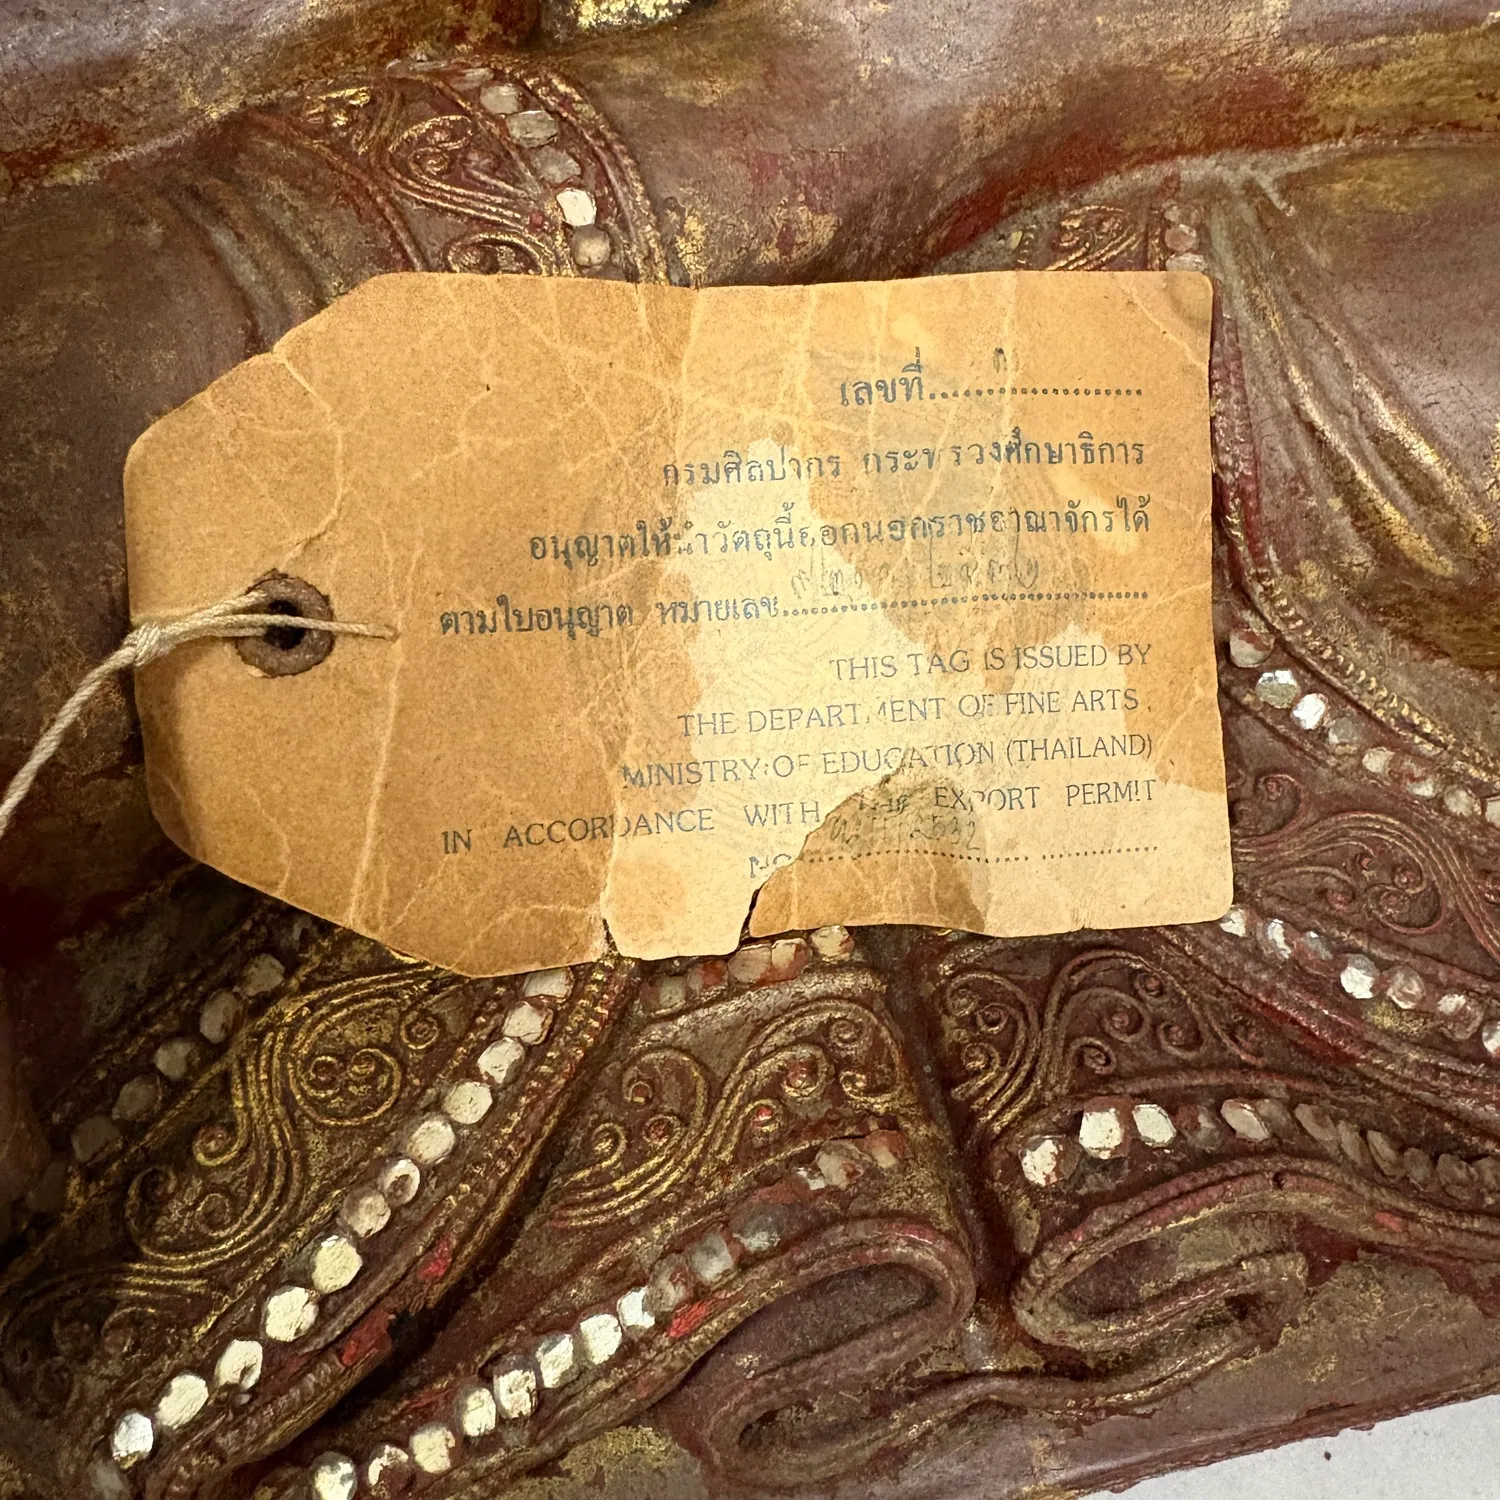 เลขที่....................
กรมศิลปากร กระทรวงศึกษาธิการ
อนุญาตให้นำวัตถุนี้ออกนอกราชอาณาจักรได้
ตามใบอนุญาต หมายเลข........................................
THIS TAG IS ISSUED BY
THE DEPARTMENT OF FINE ARTS,
MINISTRY OF EDUCATION (THAILAND)
IN ACCORDANCE WITH THE EXPORT PERMIT
NO........................................